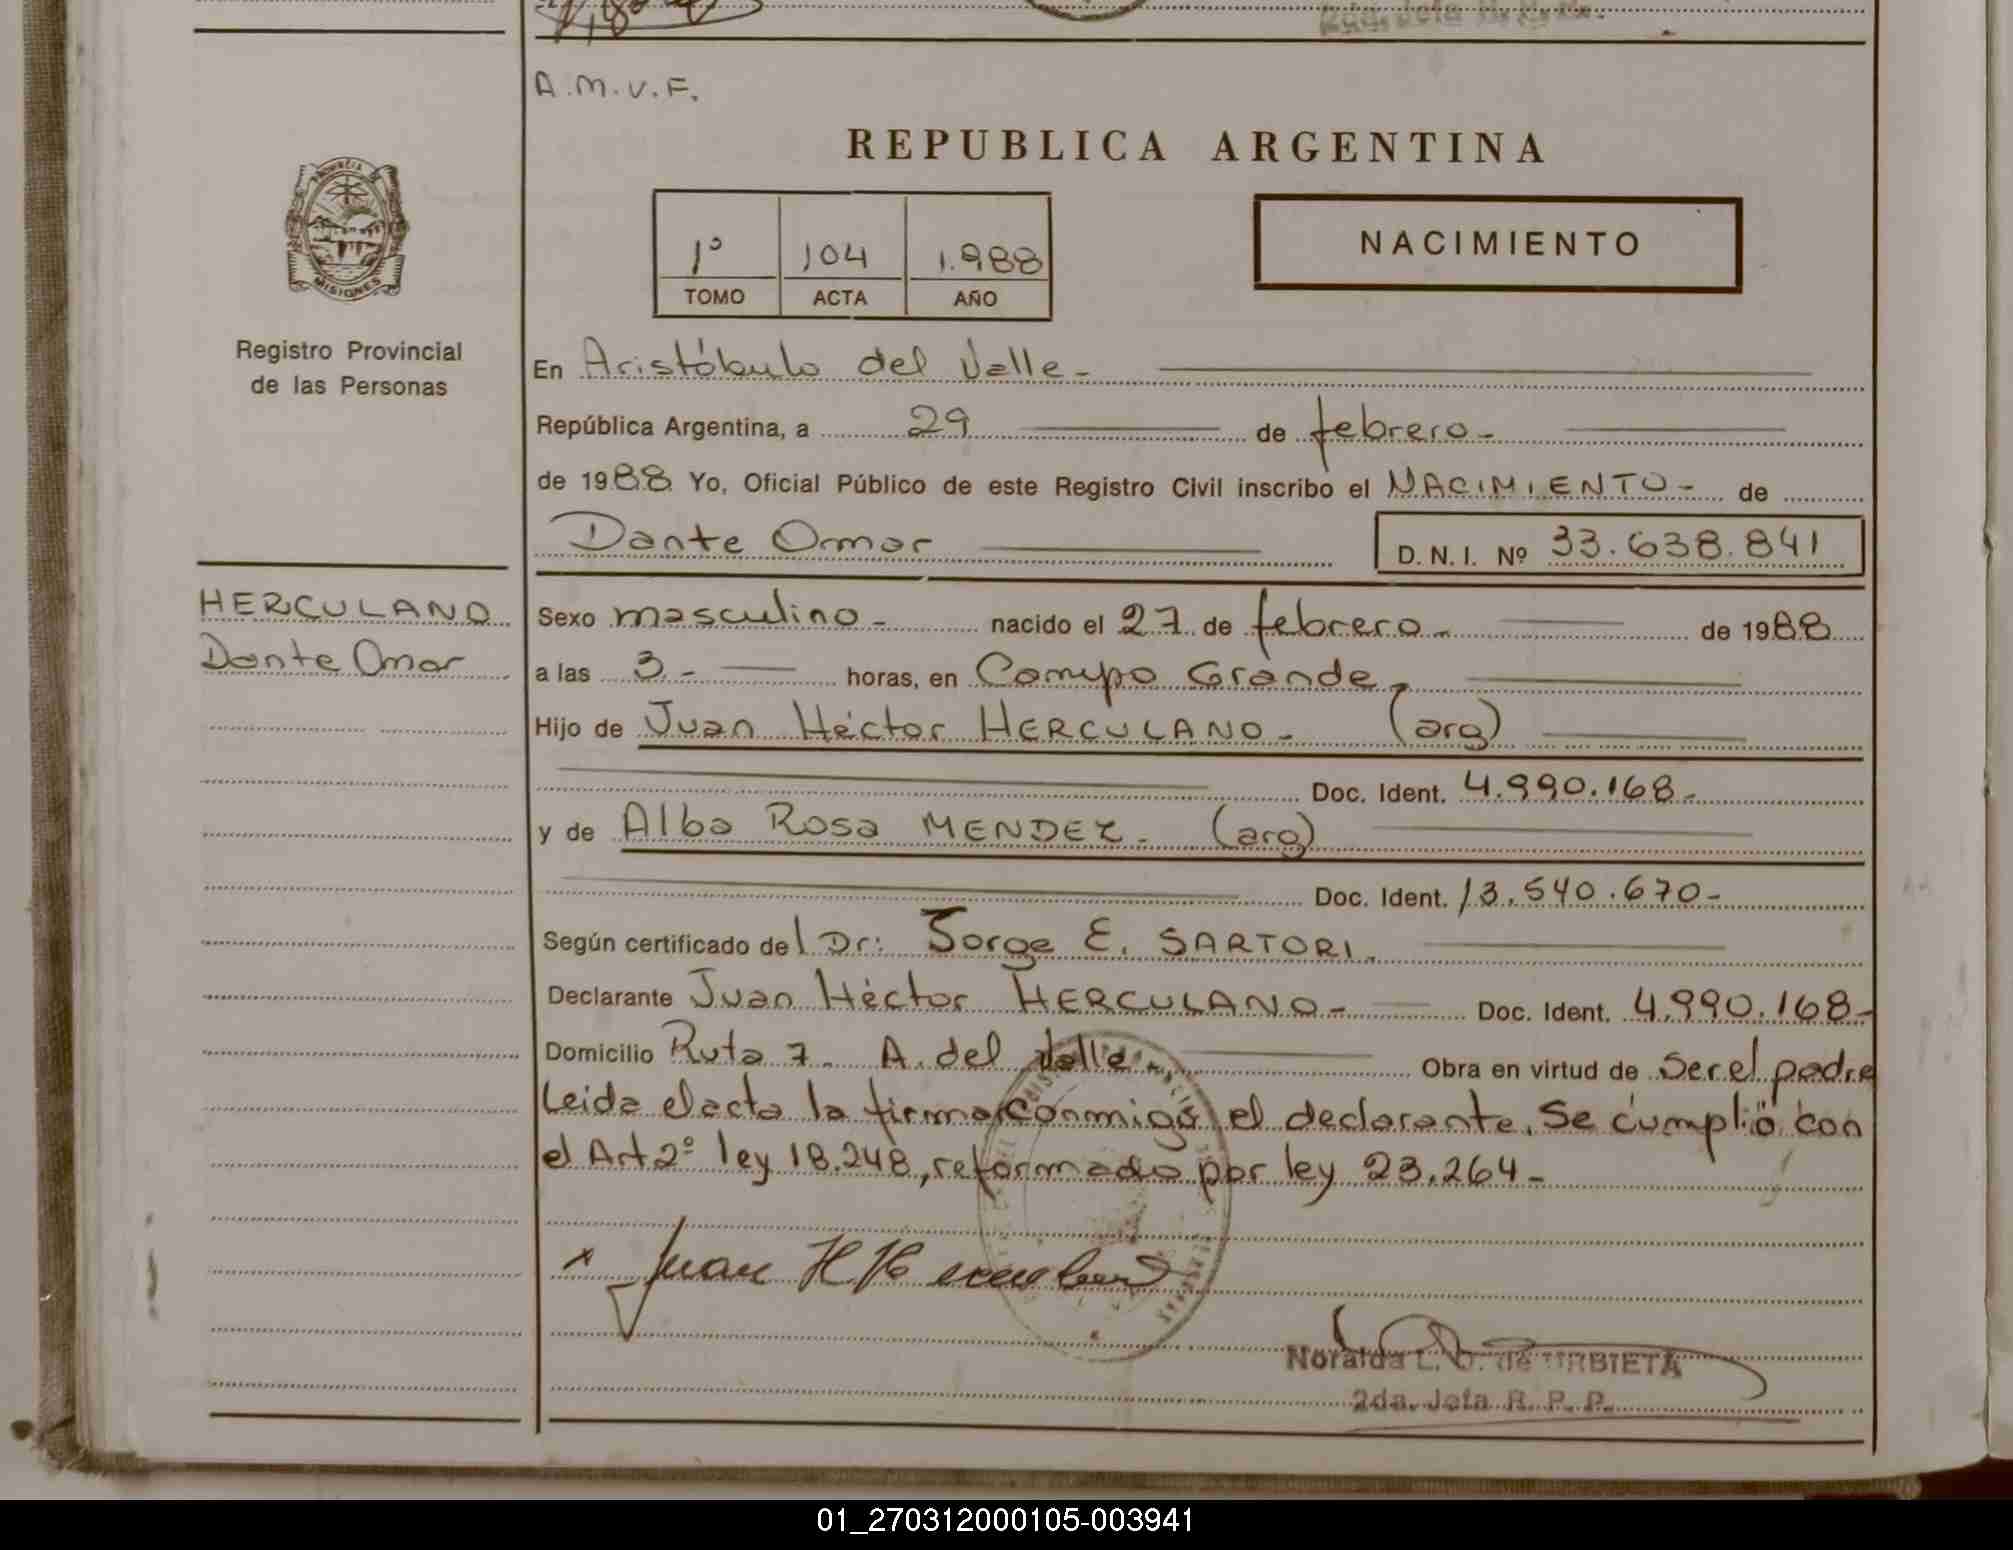 A.M.V.F.
REPUBLICA ARGENTINA
PROVINCIA DE
MISIONES
1º 104 1.988
TOMO ACTA AÑO
NACIMIENTO
Registro Provincial
de las Personas
En Aristóbulo del Valle-
República Argentina, a 29 de febrero-
de 1988 Yo, Oficial Público de este Registro Civil inscribo el NACIMIENTO- de
Dante Omar D. N. I. Nº 33.638.841
HERCULANO
Dante Omar
Sexo masculino- nacido el 27 de febrero- de 1988
a las 3- horas, en Campo Grande-
Hijo de Juan Héctor HERCULANO- (arg)
Doc. Ident. 4.990.168-
y de Alba Rosa MENDEZ- (arg)
Doc. Ident. 13.540.670-
Según certificado del Dr: Jorge E. SARTORI-
Declarante Juan Héctor HERCULANO- Doc. Ident. 4.990.168-
Domicilio Ruta 7- A. del Valle- Obra en virtud de ser el padre
Leida el acta la firma conmigo el declarante. Se cumplió con
el Art 2º ley 18.248, reformado por ley 23.264-
x Juan H. Herculano
Noralda L. O. de URBIETA
2da. Jefa R. P. P.
01_270312000105-003941